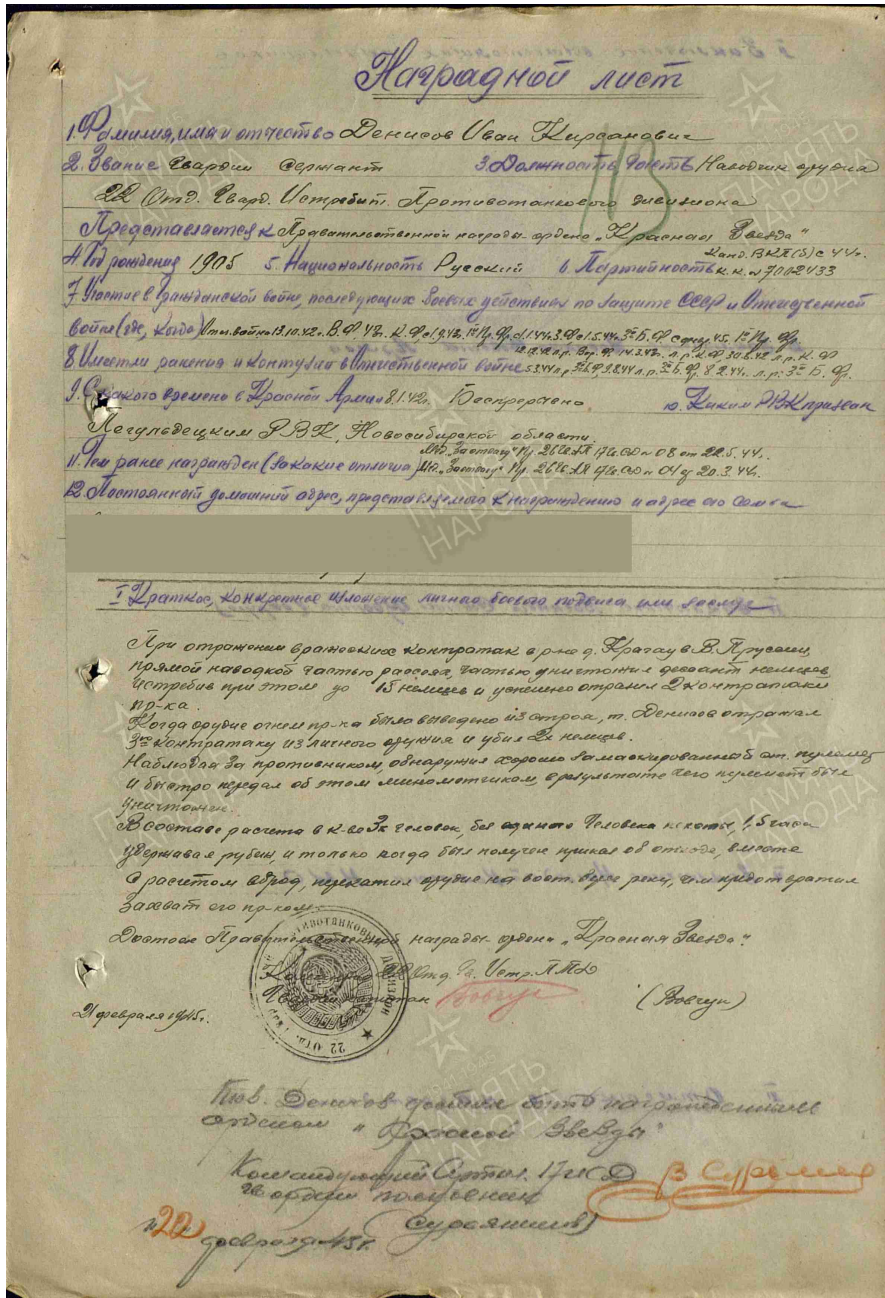 Наградной лист
1. Фамилия, имя и отчество Денисов Иван Кирсанович
2. Звание Гвардии сержант 3. Должность, часть Наводчик орудия
22 Отд. Гвард. Истребит. Противотанкового дивизиона
Представляется к Правительственной награде ордена „Красная Звезда"
4. Год рождения 1905 5. Национальность Русский 6. Партийность Канд. ВКП(б) с 44г.
к.к. № 7002433
7. Участие в гражданской войне, последующих боевых действиях по защите СССР и Отечественной
войне (где, когда)
8. Имеет ли ранения и контузии в Отечественной войне
9. С какого времени в Красной Армии 8.1.42г. Беспрерывно 10. Каким РВК призван
Пегульдецким РВК, Новосибирской области.
11. Чем ранее награжден (за какие отличия)
12. Постоянный домашний адрес, представляемого к награждению и адрес его семьи
I Краткое, конкретное изложение личного боевого подвига или заслуг
При отражении вражеских контратак в р-не д. Крагау в В. Пруссии,
прямой наводкой частью рассеял, частью уничтожил десант немцев
истребив при этом до 15 немцев и успешно отразил 2 контратаки
пр-ка.
Когда орудие огнем пр-ка было выведено из строя, т. Денисов отражал
3ю контратаку из личного оружия и убил 2х немцев.
Наблюдая за противником, обнаружил хорошо замаскированный ст. пулемет
и быстро передал об этом минометчикам, в результате чего пулемет был
уничтожен.
В составе расчета в к-ве 3х человек, без единого человека пехоты, 1,5 часа
удерживал рубеж, и только когда был получен приказ об отходе, вместе
с расчетом вброд, перекатил орудие на вост. реки, чем предотвратил
захват его пр-ком.
Достоин Правительственной награды ордена „Красная Звезда".
Командир 22 Отд. Гв. Истр. ПТД
Гвардии капитан Вовчук (Вовчук)
21 февраля 1945г.
ПРОТИВОТАНКОВЫЙ ДИВИЗИОН 22 ОТД.
Тов. Денисов достоин быть награжденным
орденом „Красной Звезды"
Командующий Артил. 17 гв. СД
гвардии полковник
"22" февраля 45г.
N3
ПАМЯТЬ НАРОДА